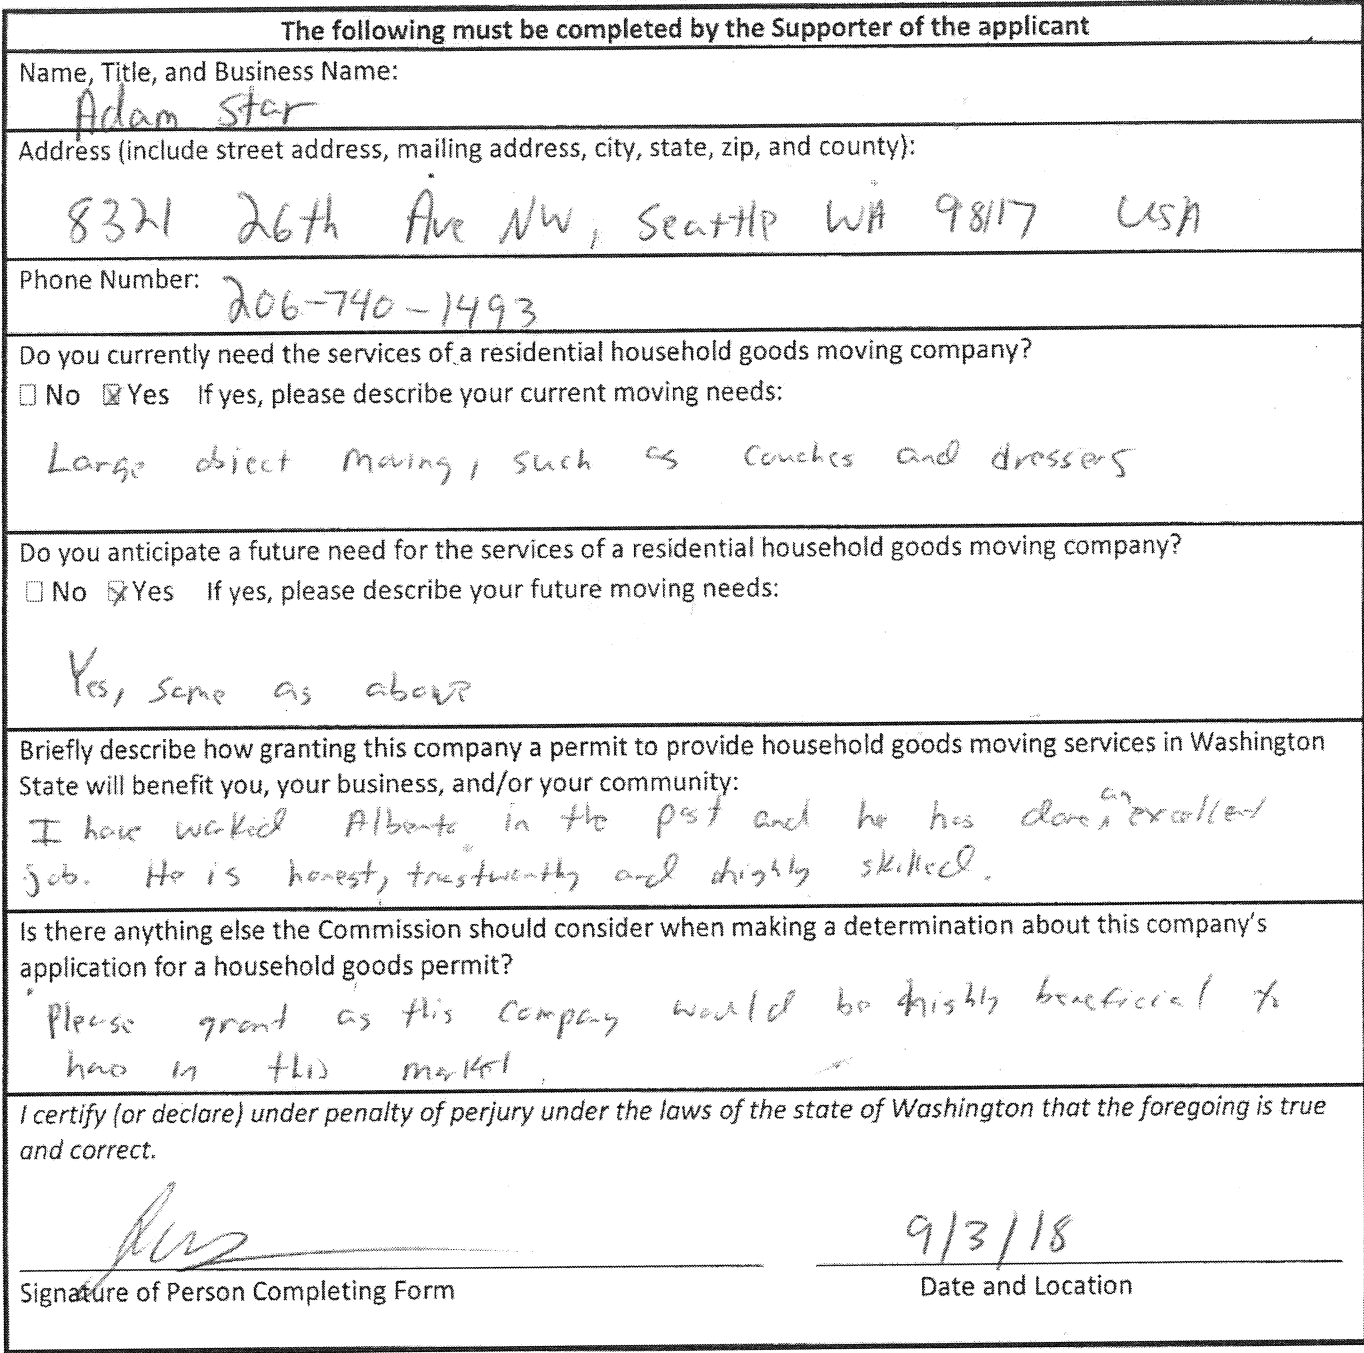 The following must be completed by the Supporter of the applicant
Name, Title, and Business Name:
Adam Star
Address (include street address, mailing address, city, state, zip, and county):
8321 26th Ave NW, Seattle WA 98117 USA
Phone Number: 206-740-1493
Do you currently need the services of a residential household goods moving company?
☐ No ☒ Yes If yes, please describe your current moving needs:
Large object moving, such as couches and dressers
Do you anticipate a future need for the services of a residential household goods moving company?
☐ No ☒ Yes If yes, please describe your future moving needs:
Yes, same as above
Briefly describe how granting this company a permit to provide household goods moving services in Washington
State will benefit you, your business, and/or your community:
I have worked Alberto in the past and he has done an excellent
job. He is honest, trustworthy and highly skilled.
Is there anything else the Commission should consider when making a determination about this company's
application for a household goods permit?
Please grant as this company would be highly beneficial to
have in this market.
I certify (or declare) under penalty of perjury under the laws of the state of Washington that the foregoing is true
and correct.
9/3/18
Signature of Person Completing Form Date and Location